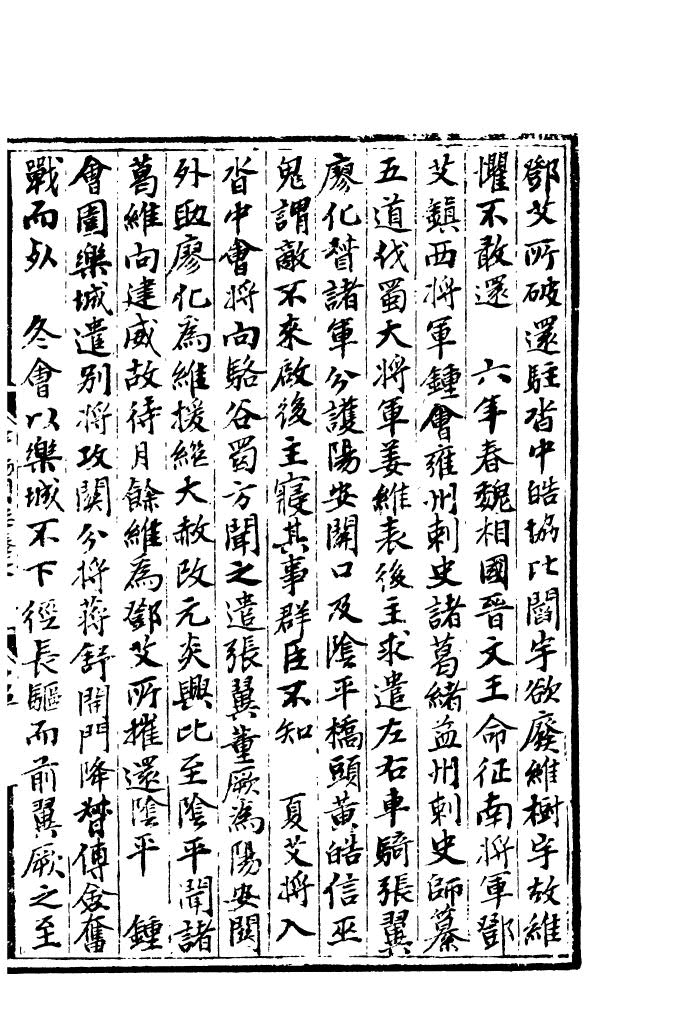 鄧艾所破還駐沓中皓協比閻宇欲廢維樹宇故維
懼不敢還　六年春魏相國晉文王命征南將軍鄧
艾鎮西將軍鍾會雍州刺史諸葛緒益州刺史師纂
五道伐蜀大將軍姜維表後主求遣左右車騎張翼
廖化督諸軍分護陽安關口及陰平橋頭黃皓信巫
鬼謂敵不來啟後主寢其事群臣不知　夏艾將入
沓中會將向駱谷蜀方聞之遣張翼董厥為陽安關
外助廖化為維援繼大赦改元炎興比至陰平聞諸
葛維向建威故待月餘維為鄧艾所摧還陰平　鍾
會圍樂城遣別將攻關分將蔣舒開門降督傅僉奮
戰而死　冬會以樂城不下徑長驅而前翼厥之至